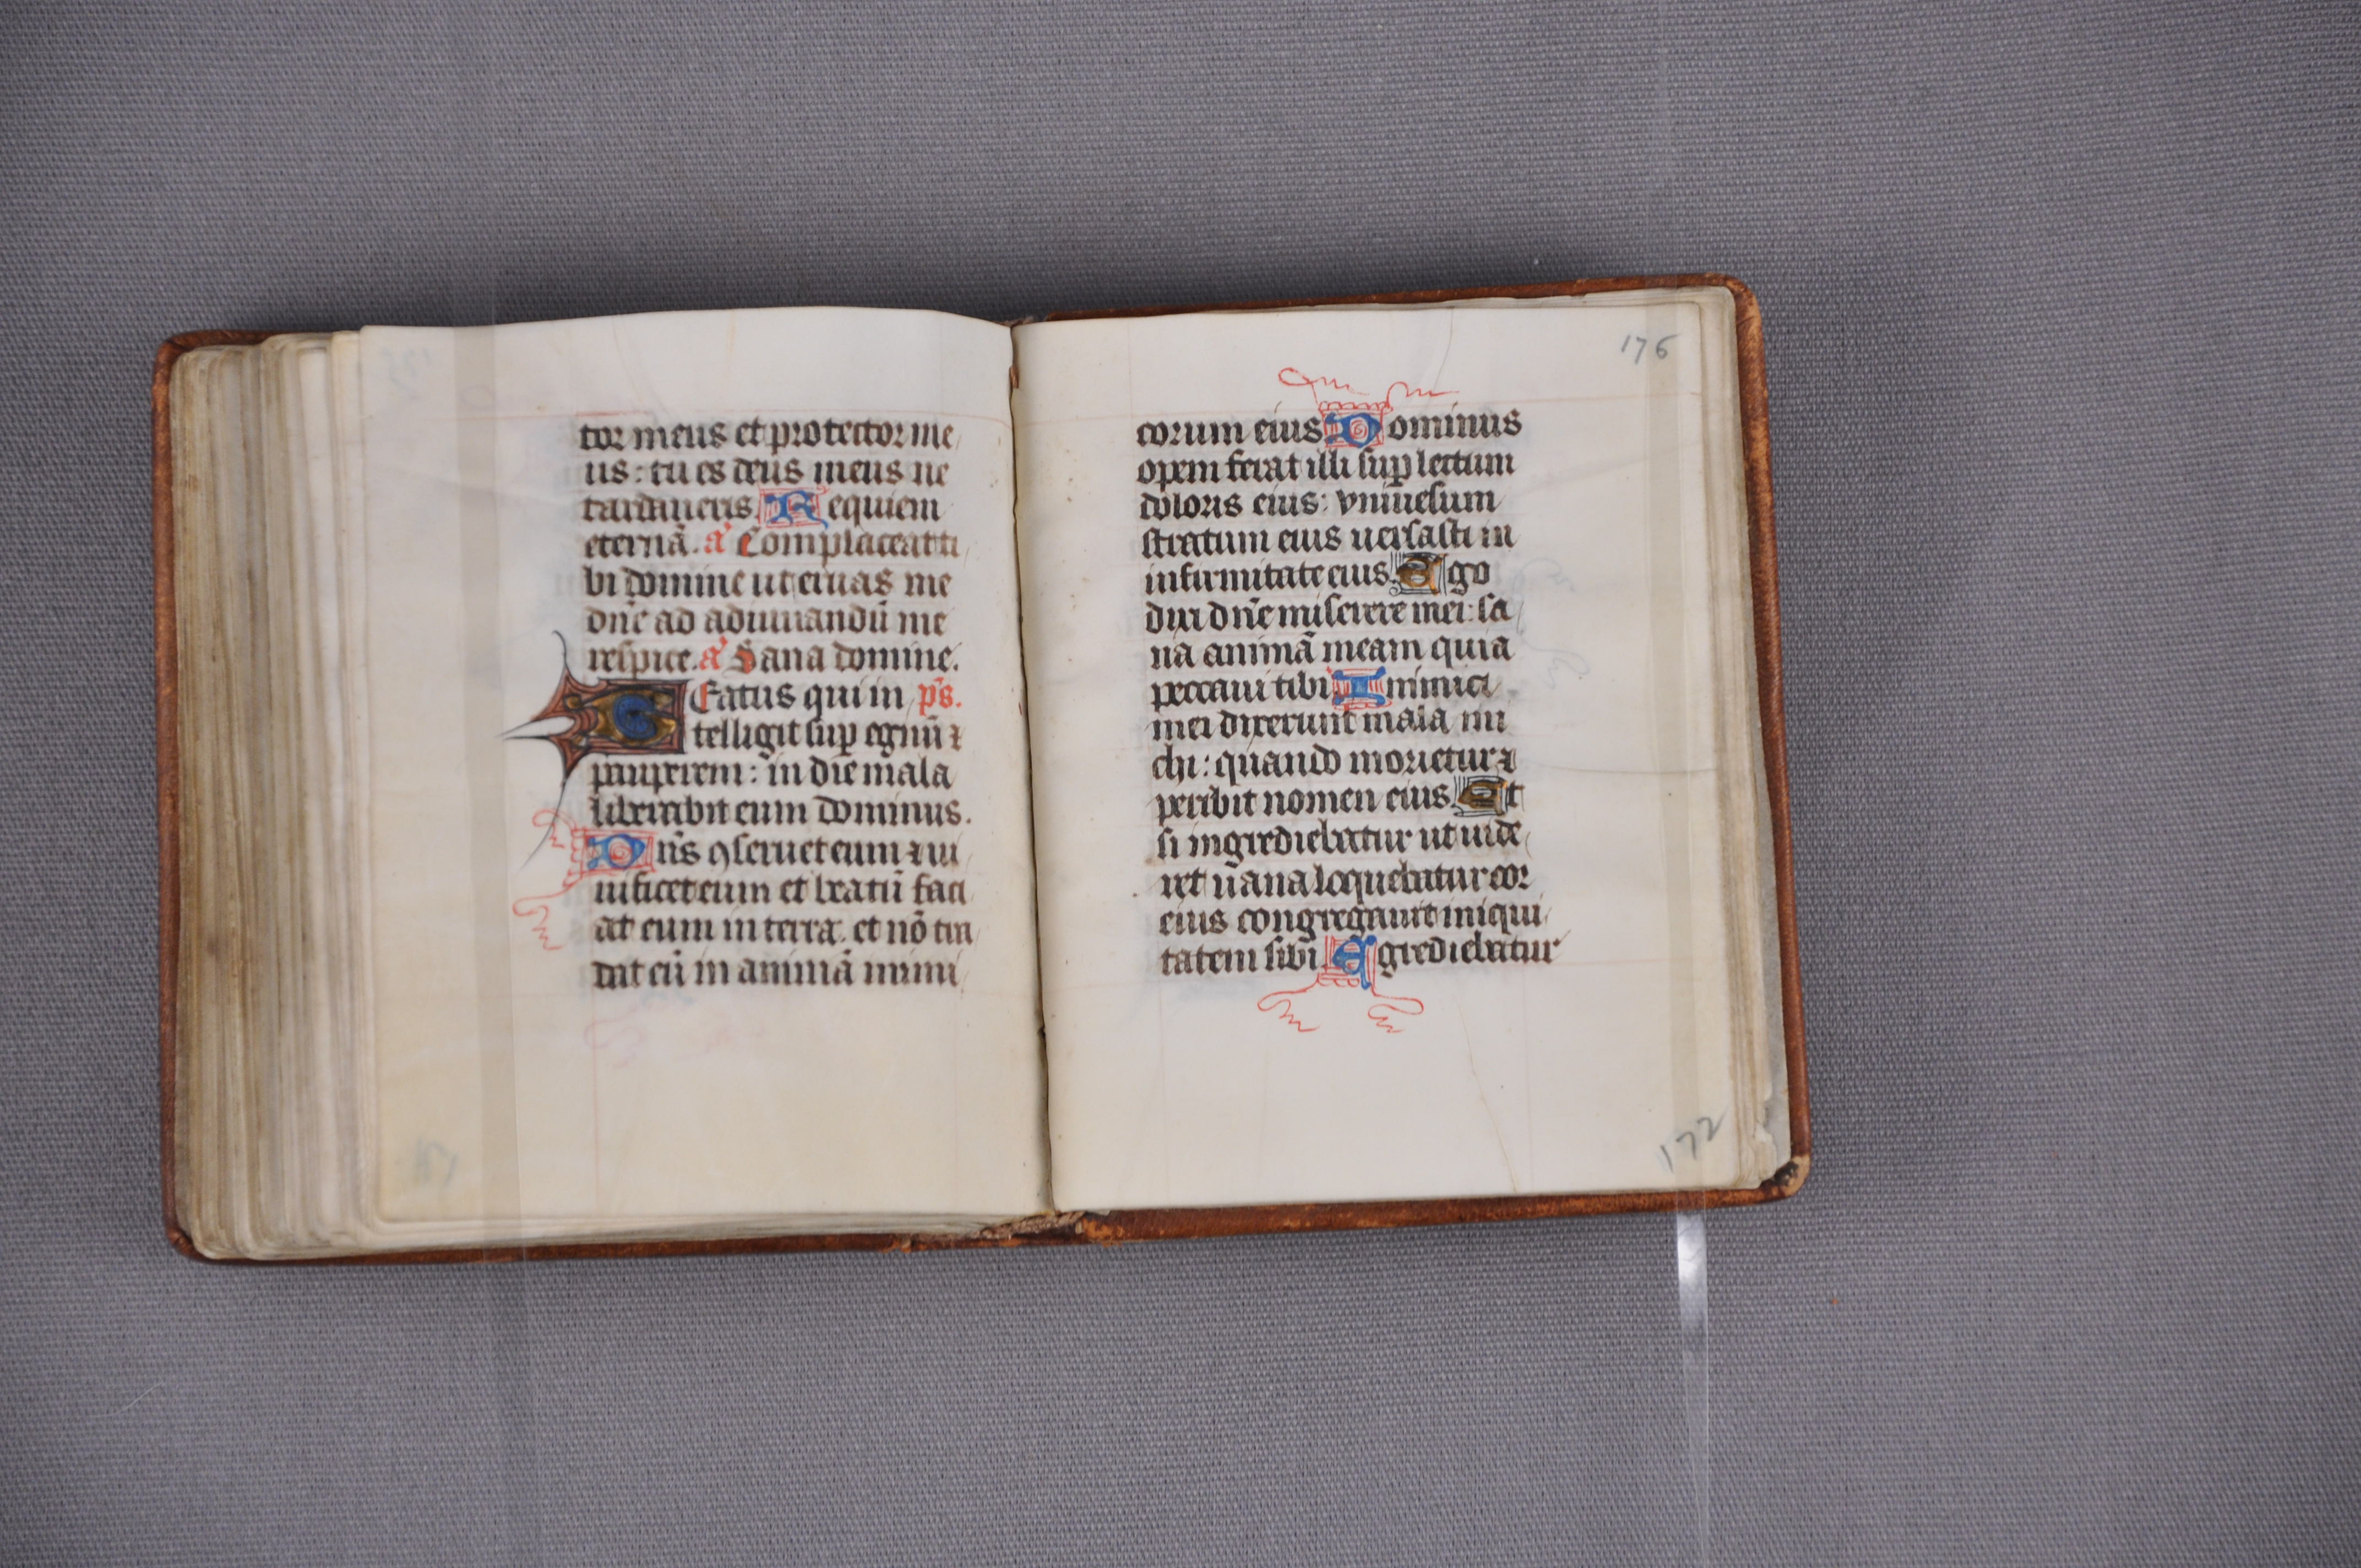 tor meus et protector me
us: tu es deus meus ne
tardaueris. Requiem
eternā. a̾ Complaceat ti
bi domine ut eruas me
dn̄e ad adiuuandū me
respice. a̾ Sana domine.
Beatus qui in ps̄.
telligit sup̱ egenū ⁊
pauperem: in die mala
liberabit eum dominus.
Dn̄s ꝯseruet eum ⁊ ui
uificet eum et beatū faci
at eum in terra. et nō tra
dat eū in animā inimi
176
corum eius Dominus
opem ferat illi sup̱ lectum
doloris eius: vniuesum
stratum eius uersasti in
infirmitate eius. Ego
dixi dn̄e miserere mei: sa
na animā meam quia
peccaui tibi Inimici
mei dixerunt mala mi
chi: quando morietur ⁊
peribit nomen eius. Et
si ingrediebatur ut uide
ret uana loquebatur cor
eius congregauit iniqui
tatem sibi. Egrediebatur
172